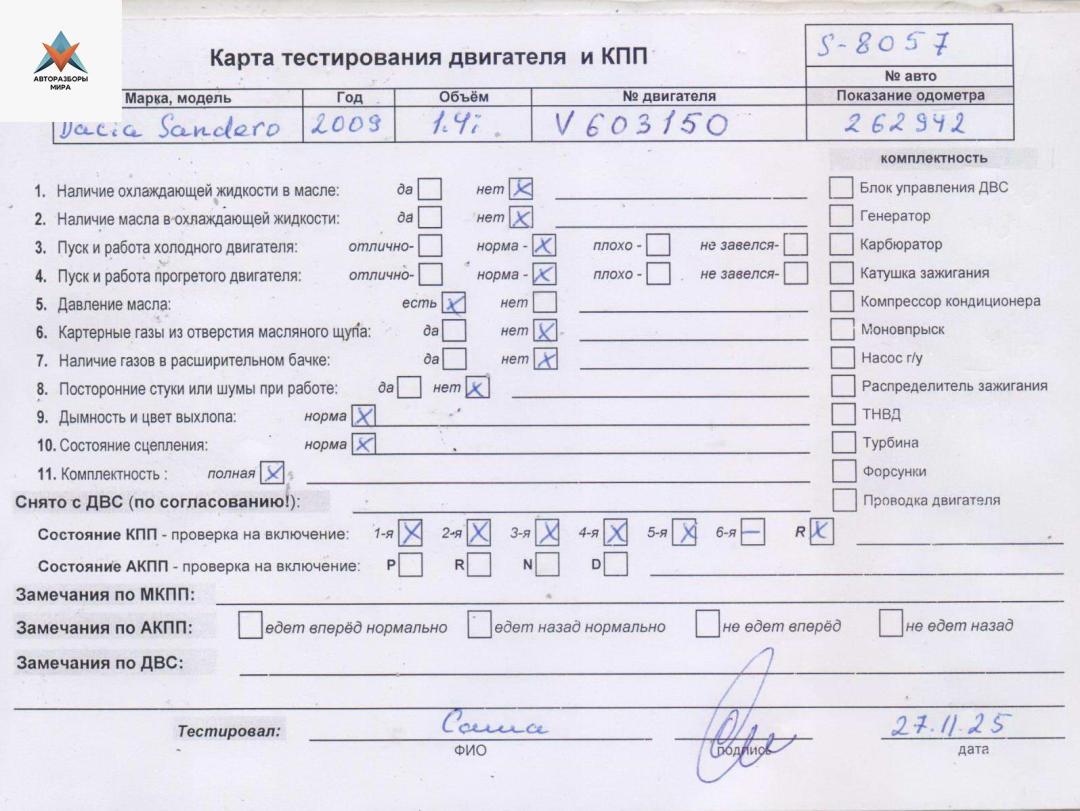 АВТОРАЗБОРЫ
МИРА
Карта тестирования двигателя и КПП
S-8057
№ авто
Марка, модель Год Объём № двигателя Показание одометра
Dacia Sandero 2009 1.4i. V603150 262942
комплектность
1. Наличие охлаждающей жидкости в масле: да нет X
Блок управления ДВС
2. Наличие масла в охлаждающей жидкости: да нет X
Генератор
3. Пуск и работа холодного двигателя: отлично- норма - X плохо - не завелся-
Карбюратор
4. Пуск и работа прогретого двигателя: отлично- норма - X плохо - не завелся-
Катушка зажигания
5. Давление масла: есть X нет
Компрессор кондиционера
6. Картерные газы из отверстия масляного щупа: да нет X
Моновпрыск
7. Наличие газов в расширительном бачке: да нет X
Насос г/у
8. Посторонние стуки или шумы при работе: да нет X
Распределитель зажигания
9. Дымность и цвет выхлопа: норма X
ТНВД
10. Состояние сцепления: норма X
Турбина
11. Комплектность : полная X
Форсунки
Снято с ДВС (по согласованию!):
Проводка двигателя
Состояние КПП - проверка на включение: 1-я X 2-я X 3-я X 4-я X 5-я X 6-я — R X
Состояние АКПП - проверка на включение: P R N D
Замечания по МКПП:
Замечания по АКПП: едет вперёд нормально едет назад нормально не едет вперёд не едет назад
Замечания по ДВС:
Тестировал: Саша 27.11.25
ФИО подпись дата